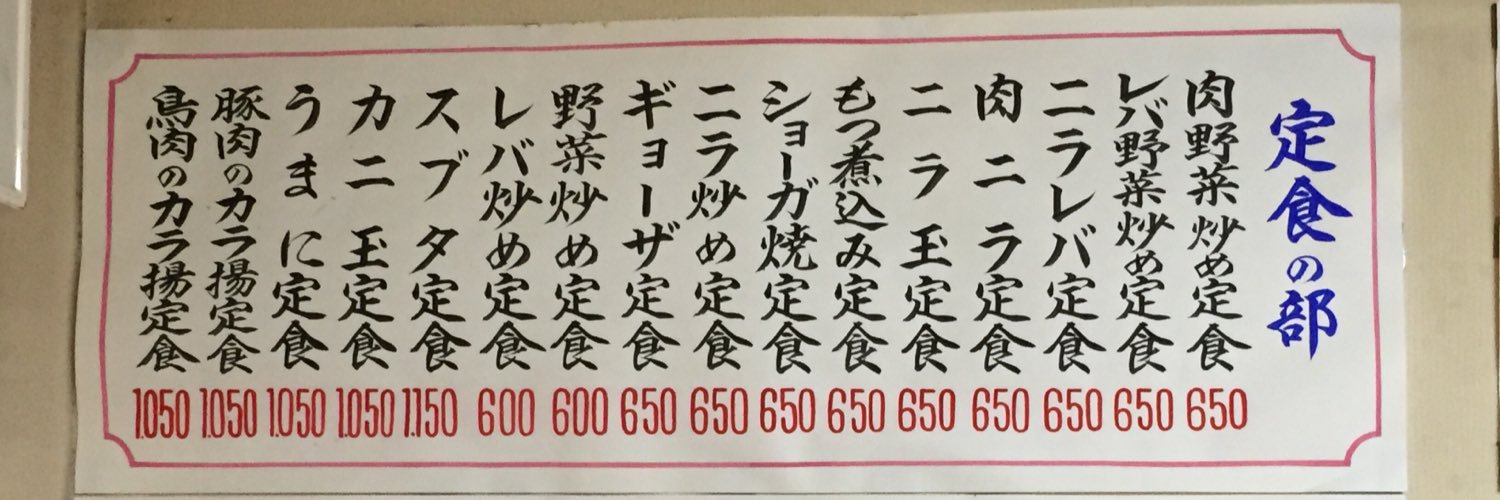 定食の部
肉野菜炒め定食 650
レバ野菜炒め定食 650
ニラレバ定食 650
肉ニラ定食 650
ニラ玉定食 650
もつ煮込み定食 650
ショーガ焼定食 650
ニラ炒め定食 650
ギョーザ定食 650
野菜炒め定食 600
レバ炒め定食 600
スブタ定食 1.150
カニ玉定食 1.050
うまに定食 1.050
豚肉のカラ揚定食 1.050
鳥肉のカラ揚定食 1.050